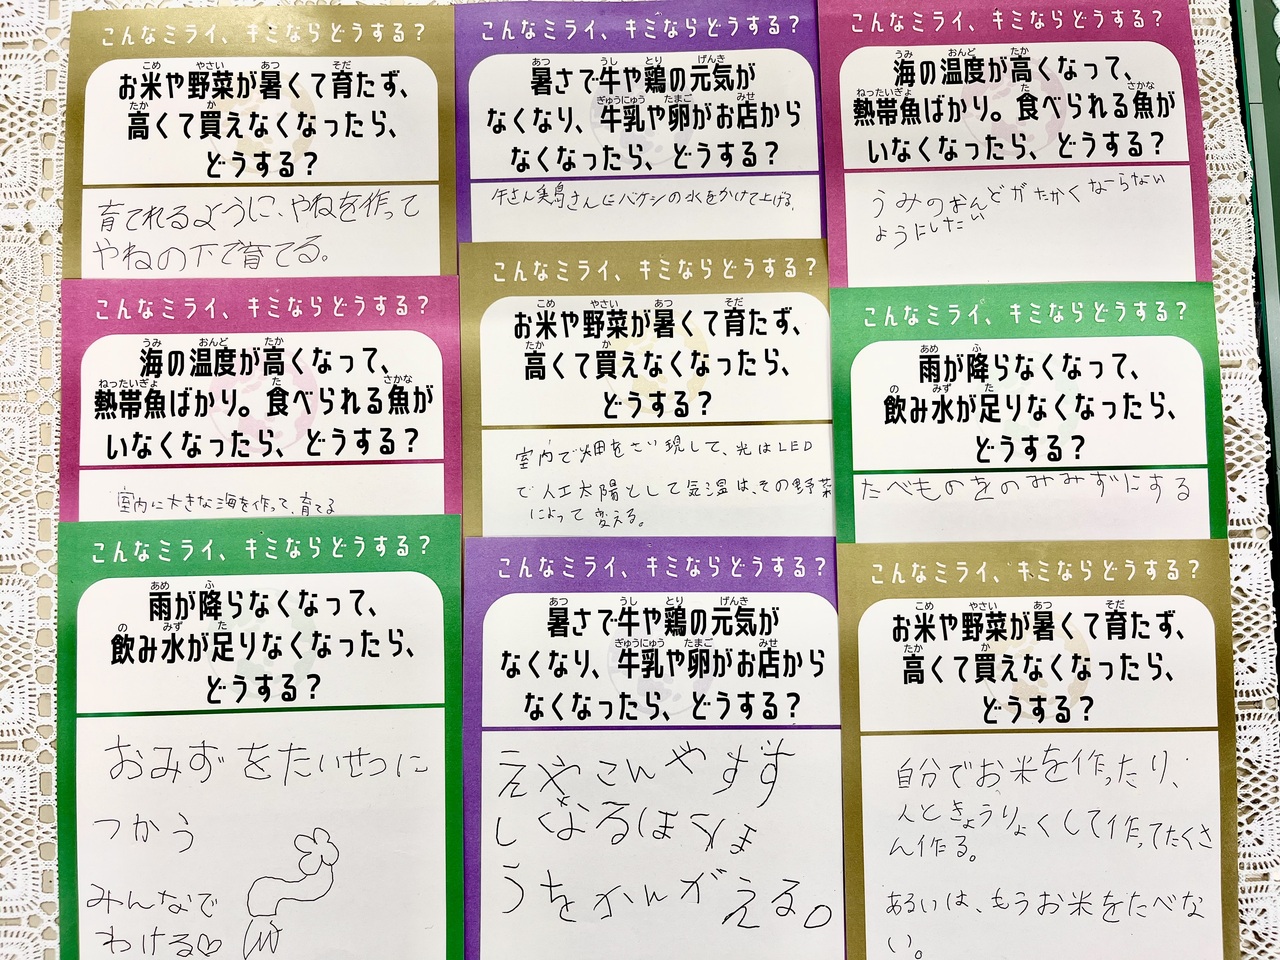 こんなミライ、キミならどうする？
お米や野菜が暑くて育たず、
高くて買えなくなったら、
どうする？
育てれるように、やねを作って
やねの下で育てる。
こんなミライ、キミならどうする？
暑さで牛や鶏の元気が
なくなり、牛乳や卵がお店から
なくなったら、どうする？
牛さん鳥さんにバケツの水をかけて上げる。
こんなミライ、キミならどうする？
海の温度が高くなって、
熱帯魚ばかり。食べられる魚が
いなくなったら、どうする？
うみのおんどがたかくならない
ようにしたい
こんなミライ、キミならどうする？
海の温度が高くなって、
熱帯魚ばかり。食べられる魚が
いなくなったら、どうする？
室内に大きな海を作って、育てる
こんなミライ、キミならどうする？
お米や野菜が暑くて育たず、
高くて買えなくなったら、
どうする？
室内で畑をさい現して、光はLED
で人工太陽として気温は、その野菜
によって変える。
こんなミライ、キミならどうする？
雨が降らなくなって、
飲み水が足りなくなったら、
どうする？
たべものをのみみずにする
こんなミライ、キミならどうする？
雨が降らなくなって、
飲み水が足りなくなったら、
どうする？
おみずをたいせつに
つかう
みんなで
わける♡
こんなミライ、キミならどうする？
暑さで牛や鶏の元気が
なくなり、牛乳や卵がお店から
なくなったら、どうする？
うをかんがえる。
こんなミライ、キミならどうする？
お米や野菜が暑くて育たず、
高くて買えなくなったら、
どうする？
自分でお米を作ったり、
人ときょうりょくして作ってたくさ
ん作る。
あるいは、もうお米をたべな
い。